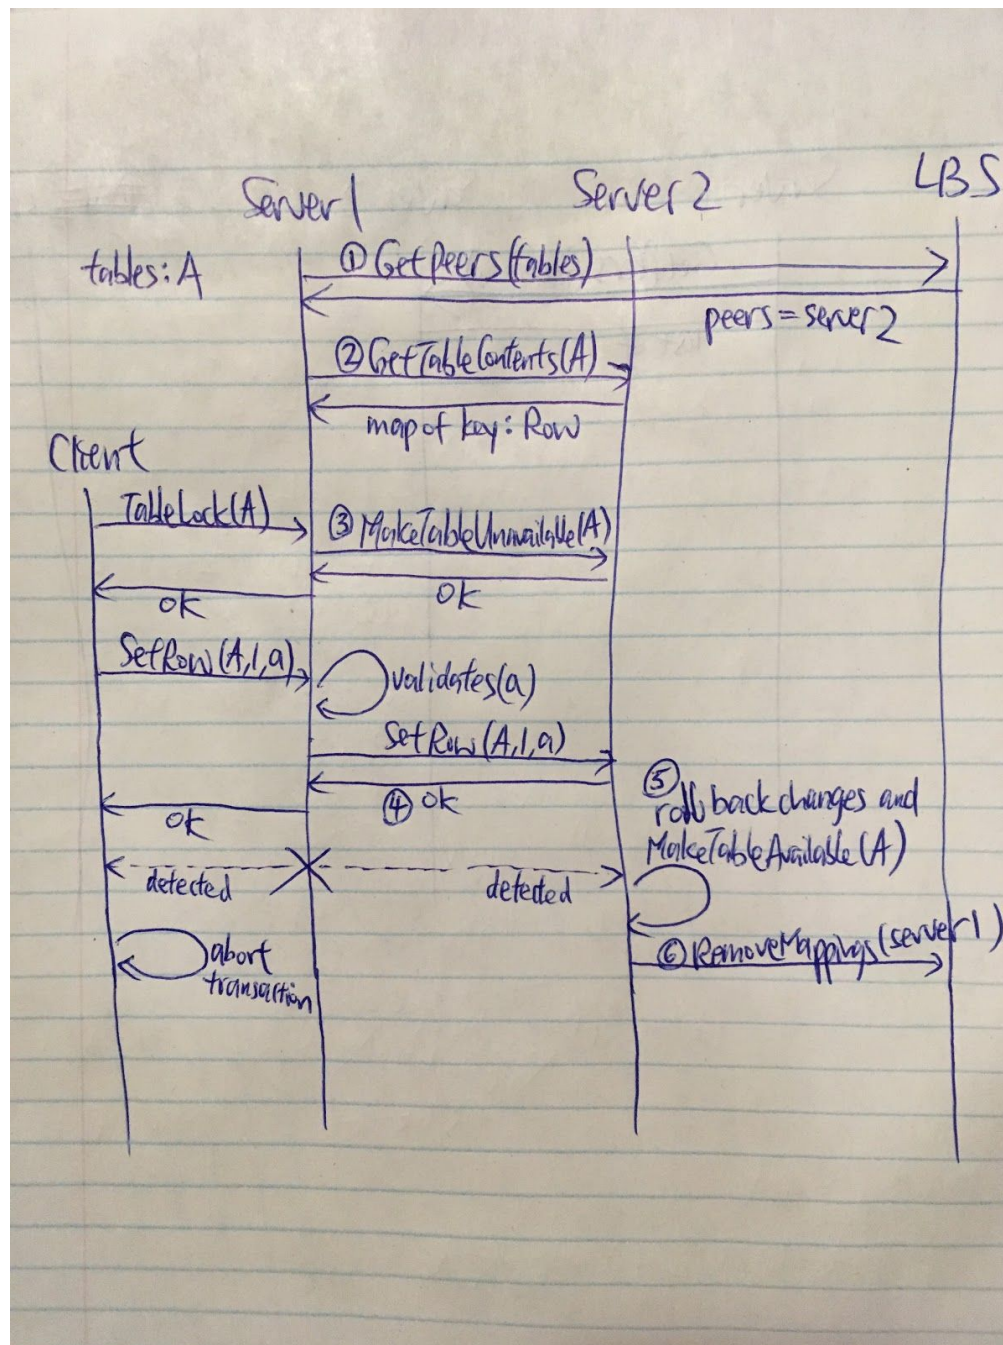 Server 1
Server 2
LBS
tables: A
① GetPeers(tables)
peers = server2
② GetTableContents(A)
map of key: Row
Client
TableLock(A)
③ MakeTableUnavailable(A)
ok
ok
SetRow(A,1,a)
validates(a)
SetRow(A,1,a)
④ ok
ok
⑤
roll back changes and
MakeTableAvailable(A)
detected
detected
⑥ RemoveMappings(server1)
abort
transaction